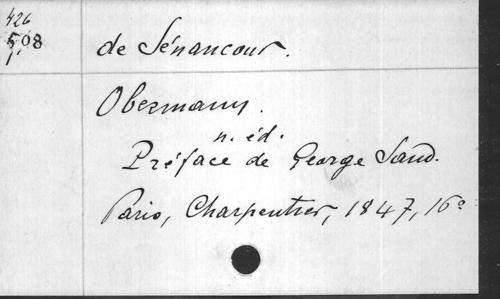 426
508
de Sénancour.
Obermann.
n. éd.
Préface de George Sand.
Paris, Charpentier, 1847, 16º